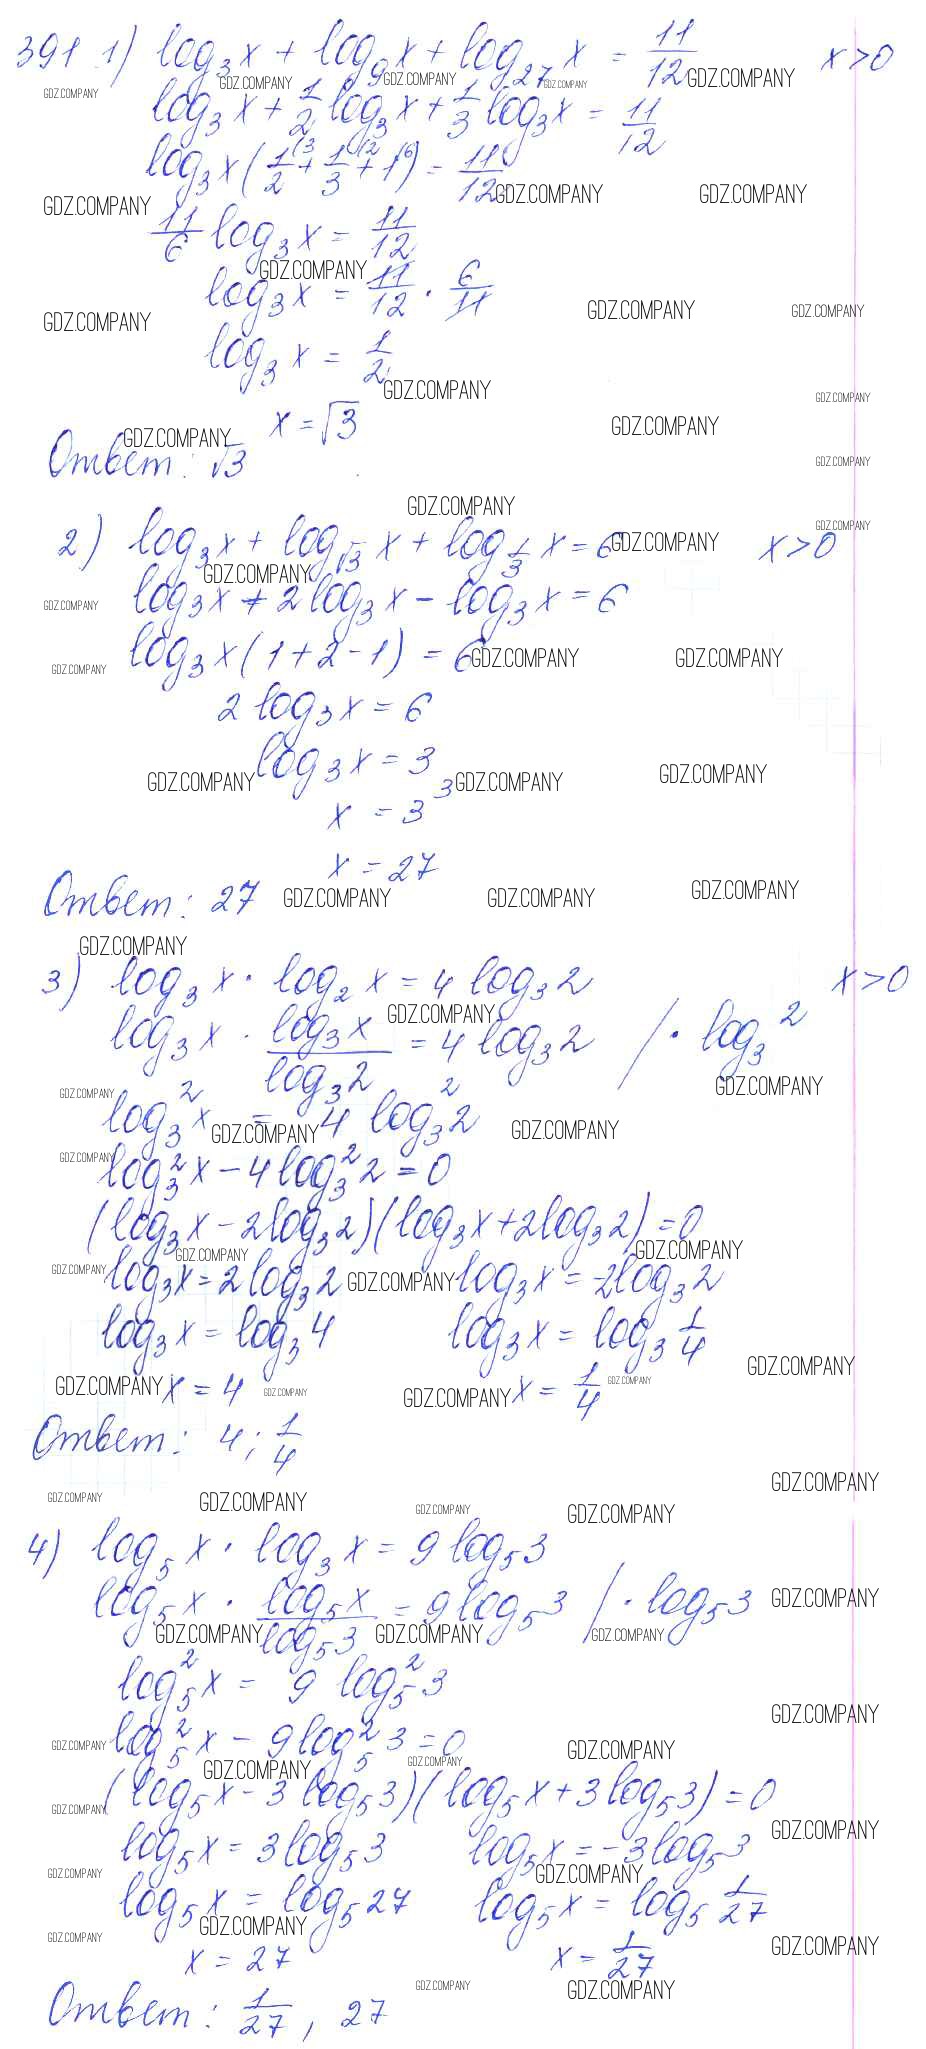 391 1) log₃x + log₉x + log₂₇x = 11/12 x>0
log₃x + 1/2 log₃x + 1/3 log₃x = 11/12
log₃x (1/2 + 1/3 + 1) = 11/12
11/6 log₃x = 11/12
log₃x = 11/12 · 6/11
log₃x = 1/2
x = √3
Ответ: √3
2) log₃x + log_√3 x + log_1/3 x = 6 x>0
log₃x + 2log₃x − log₃x = 6
log₃x (1+2−1) = 6
2 log₃x = 6
log₃x = 3
x = 3³
x = 27
Ответ: 27
3) log₃x · log₂x = 4 log₃2 x>0
log₃x · log₃x / log₃2 = 4 log₃2 / · log₃2
log₃²x = 4 log₃²2
log₃²x − 4log₃²2 = 0
(log₃x − 2log₃2)(log₃x + 2log₃2) = 0
log₃x = 2log₃2 log₃x = −2log₃2
log₃x = log₃4 log₃x = log₃ 1/4
x = 4 x = 1/4
Ответ: 4; 1/4
4) log₅x · log₃x = 9 log₅3
log₅x · log₅x / log₅3 = 9log₅3 / · log₅3
log₅²x = 9 log₅²3
log₅²x − 9log₅²3 = 0
(log₅x − 3log₅3)(log₅x + 3log₅3) = 0
log₅x = 3log₅3 log₅x = −3log₅3
log₅x = log₅27 log₅x = log₅ 1/27
x = 27 x = 1/27
Ответ: 1/27, 27
GDZ.COMPANY